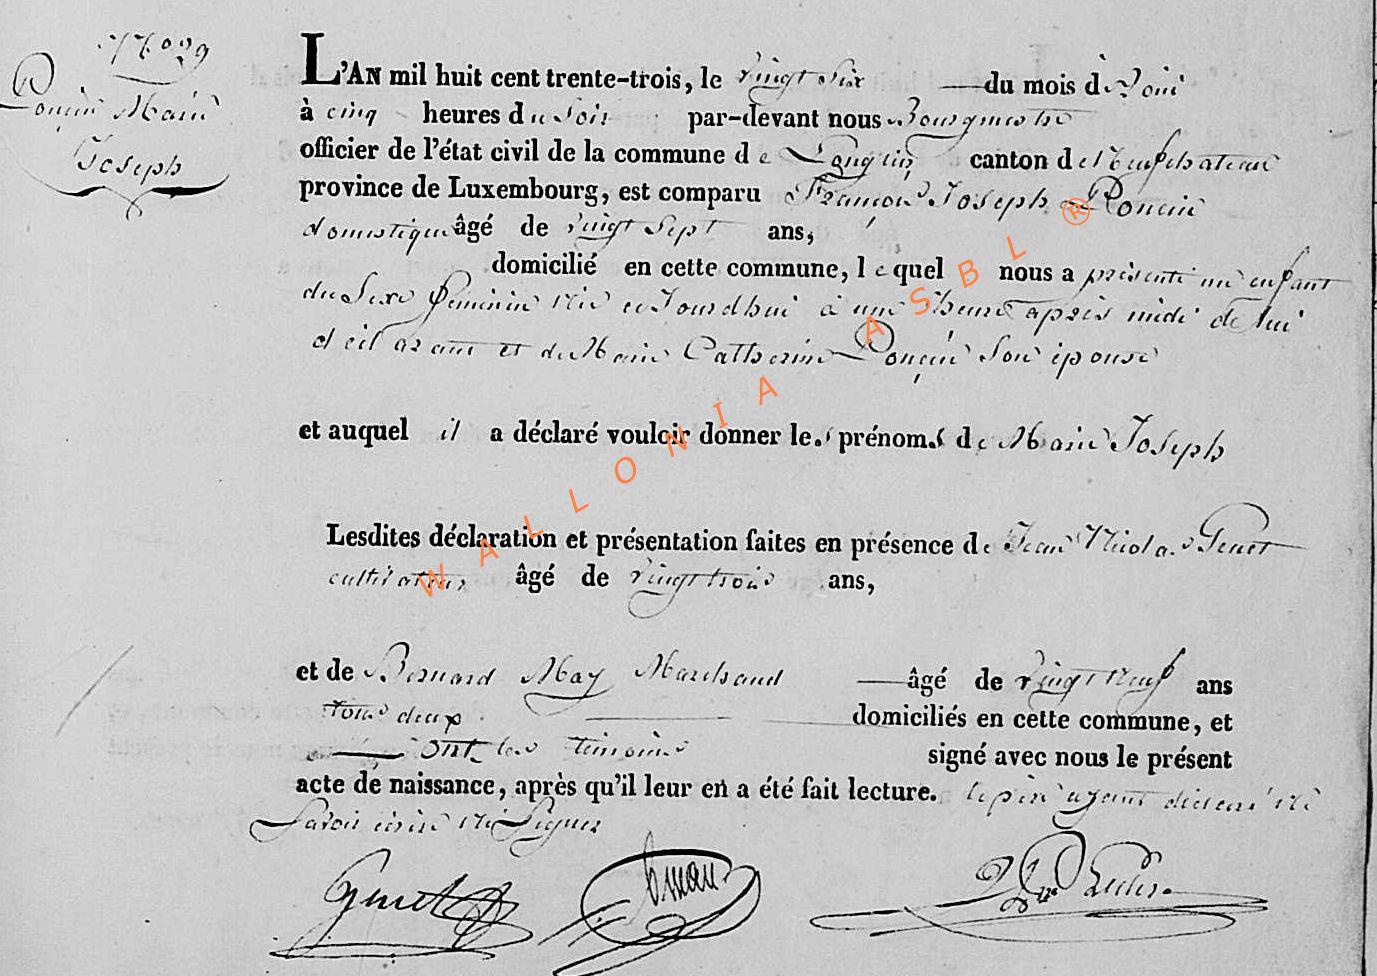 N° 29
Ponçin Marie
Joseph
L'AN mil huit cent trente-trois, le vingt six du mois de Juin
à cinq heures du Soir par-devant nous Bourgmestre
officier de l'état civil de la commune de Longlier canton de Neufchateau
province de Luxembourg, est comparu François Joseph Ponçin
domestique âgé de vingt Sept ans,
domicilié en cette commune, lequel nous a présenté un enfant
du Sexe féminin né ce Jourdhui à une heure après midi de lui
déclarant et de Marie Catherine Ponçin Son épouse
et auquel il a déclaré vouloir donner les prénoms de Marie Joseph
Lesdites déclaration et présentation faites en présence de Jean Nicolas Genet
cultivateur âgé de vingt trois ans,
et de Bernard May Marchand âgé de vingt neuf ans
tous deux domiciliés en cette commune, et
ont les témoins signé avec nous le présent
acte de naissance, après qu'il leur en a été fait lecture. le père ayant déclaré ne
Savoir écrire ni Signer
Genet
WALLONIA ASBL ®